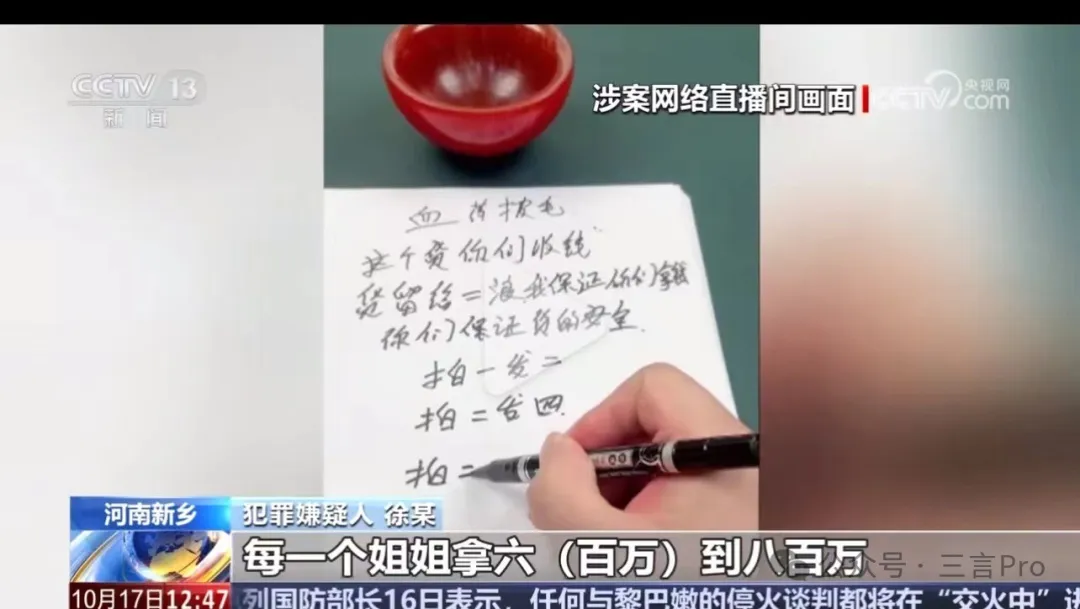 CCTV 13
新闻
涉案网络直播间画面
央视网
CCTV com
这个货你们收钱
货留给二浪我保证你们拿钱
你们保证货的安全.
拍一发二
拍二发四.
拍二
河南新乡
犯罪嫌疑人 徐某
每一个姐姐拿六（百万）到八百万
公众号 · 三言Pro
10月17日12:47
列国防部长16日表示，任何与黎巴嫩的停火谈判都将在“交火中”进